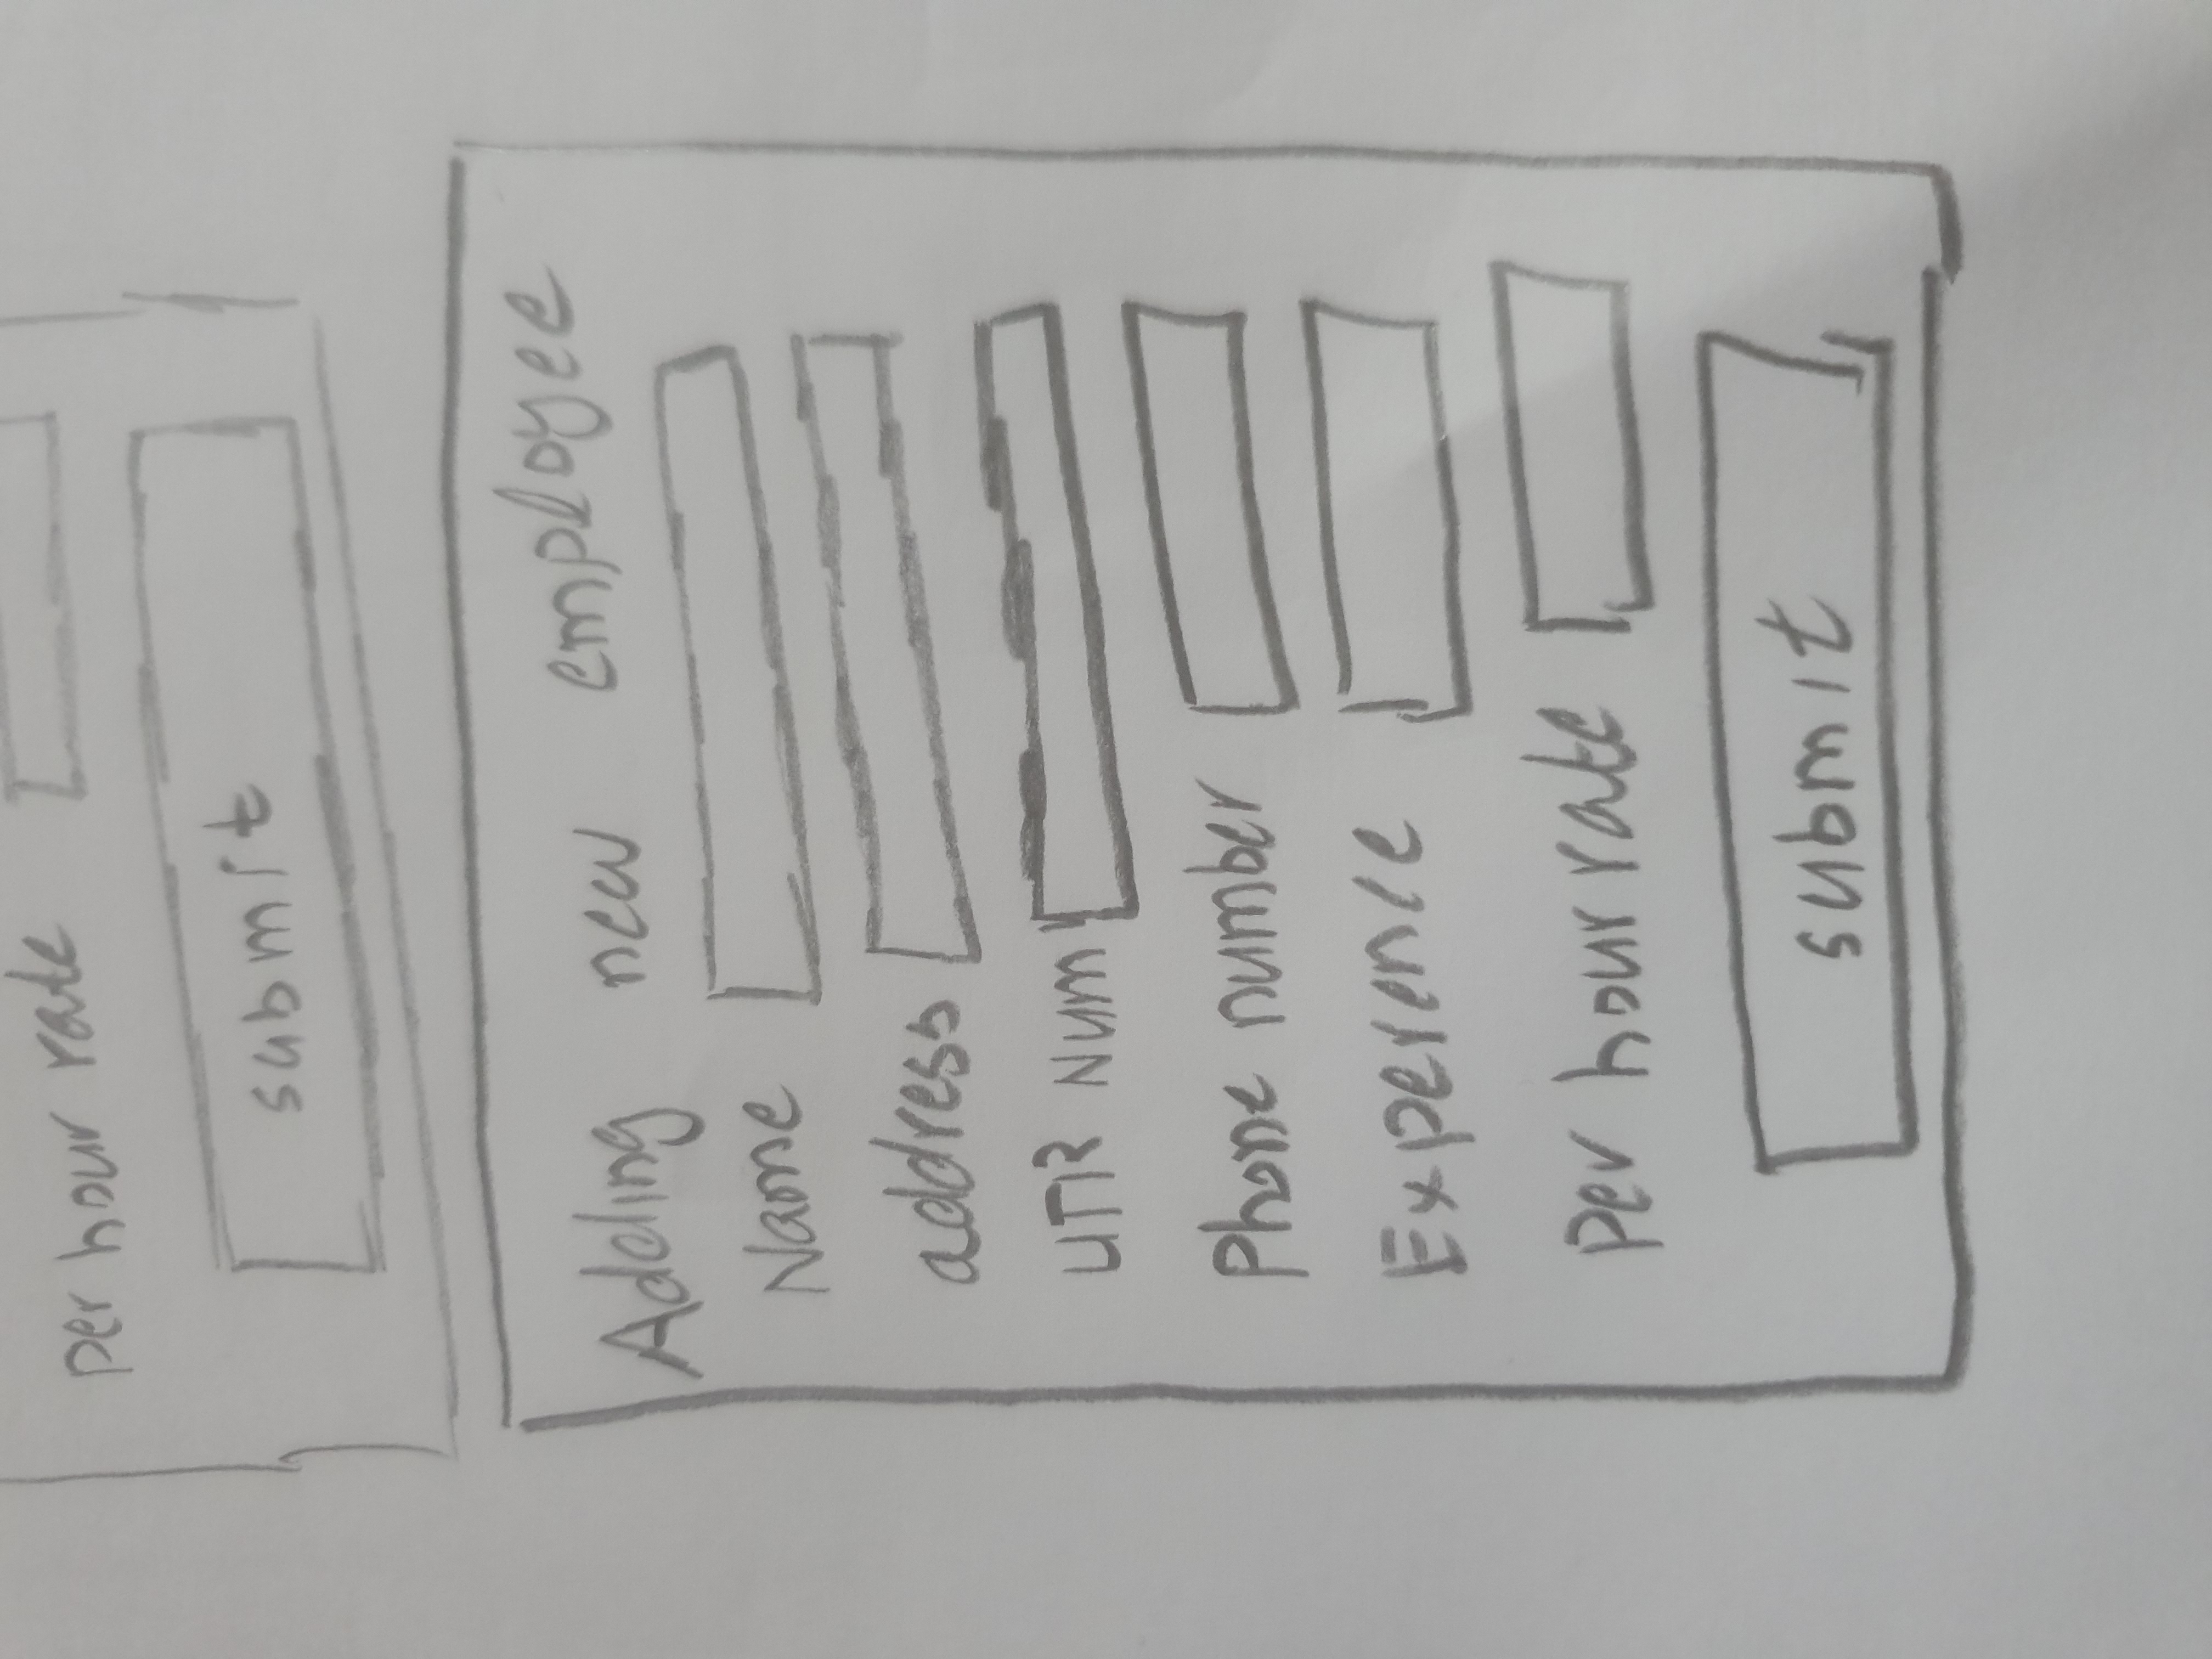 per hour rate
submit
Adding new employee
Name
address
UTR Num
Phone number
Experence
per hour rate
submit